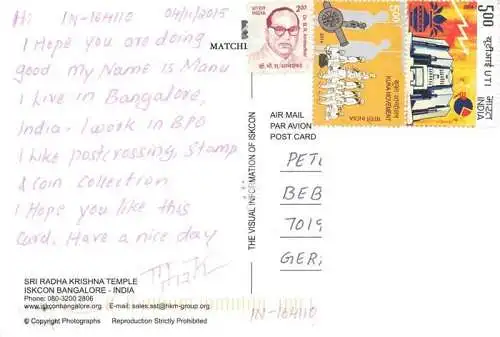 Hi IN-164110 04/11/2015
I Hope you are doing
good My Name is Manu
I Live in Bangalore,
India - I work in BPO
I Like postcrossing, Stamp
& Coin Collection
I Hope you Like this
Card. Have a nice day
SRI RADHA KRISHNA TEMPLE
ISKCON BANGALORE - INDIA
Phone: 080-3200 2806
www.iskconbangalore.org. E-mail: sales.sst@hkm-group.org
© Copyright Photographs Reproduction Strictly Prohibited
THE VISUAL INFORMATION OF ISKCON
MATCHI
भारत
INDIA
2.00
Dr. B. R. Ambedkar
500
KUKA MOVEMENT
भारत INDIA
5.00
UTI
भारत
INDIA
AIR MAIL
PAR AVION
POST CARD
PET
BEB
7019
GER
IN-164110